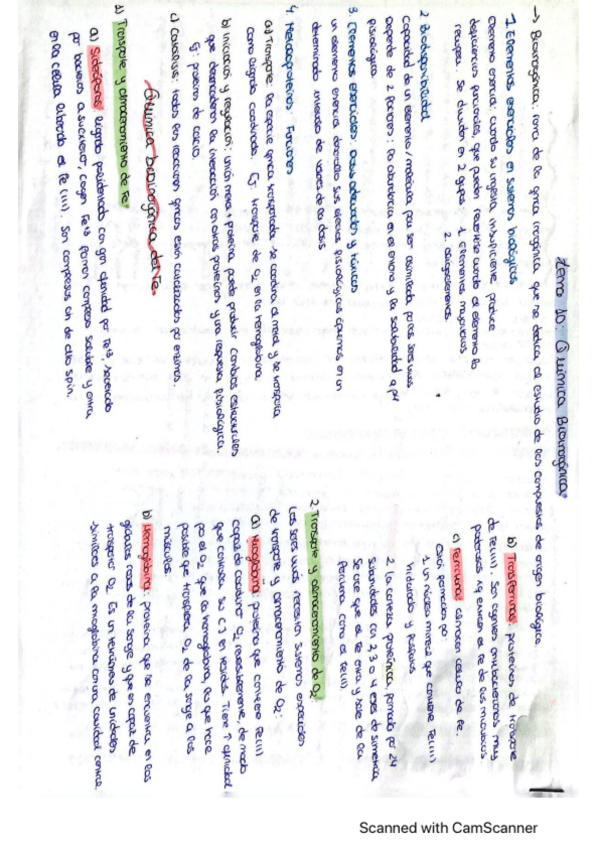 Tema 10: Química Bioinorgánica
→ Bioinorgánica: rama de la qmca inorgánica que se dedica al estudio de los compuestos de origen biológico.
1. Elementos esenciales en sistemas biológicos
Elemento esencial: cuando su ingesta insuficiente produce
deficiencias funcionales, que pueden revertirse cuando el elemento lo
recupera. Se dividen en 2 grupos: 1. Elementos mayoritarios
2. oligoelementos.
2. Biodisponibilidad
Capacidad de un elemento/molécula para ser asimilada por los seres vivos
Depende de 2 factores: la abundancia en el entorno y la solubilidad a pH
fisiológico.
3. Elementos esenciales: Dosis adecuadas y tóxicas
un elemento esencial desarrolla sus efectos fisiológicos óptimos en un
determinado intervalo de valores de la dosis
4. Metaloproteínas: Funciones
a) Transporte: la especie qmica transportada se coordina al metal y se transporta
como ligando coordinado. Ej: transporte de O2 en la hemoglobina.
b) Iniciación y regulación: unión metal + proteína puede producir cambios estructurales
que desencadenan la interacción con otras proteínas y una respuesta fisiológica.
Ej: proteínas de calcio.
c) Catálisis: todas las reacciones qmicas están catalizadas por enzimas.
Química bioinorgánica del Fe
1) Transporte y almacenamiento de Fe
a) Sideróforos: ligando polidentado con gran afinidad por Fe+3 secretado
por bacterias a su exterior, cogen Fe+3 forman complejo soluble y entra
en la célula liberando el Fe (III). Son complejos oh de alto spin.
b) Transferrinas: proteínas de transporte
de Fe(III). Son agentes antibacterianos muy
poderosos xq extraen el Fe de los microbios.
c) Ferritina: almacén celular de Fe.
Están formados por:
1. un núcleo mineral que contiene Fe(III)
hidratado y fosfato.
2. la corteza proteínica, formada por 24
subunidades con 2, 3 o 4 ejes de simetría.
Se cree que el Fe entra y sale de la
ferritina como el Fe(II).
2. Transporte y almacenamiento de O2:
Los seres vivos necesitan sistemas especiales
de transporte y almacenamiento de O2:
a) Mioglobina: proteína que contiene Fe(II)
capaz de coordinar O2 reversiblemente, de modo
que controla su [ ] en tejidos. Tiene ↑ afinidad
por el O2 que la hemoglobina, lo que hace
posible que transfiera O2 de la sangre a los
músculos.
b) Hemoglobina: proteína que se encuentra en los
glóbulos rojos de la sangre y que es capaz de
transportar O2. Es un tetrámero de unidades
similares a la mioglobina con una cavidad central.
Scanned with CamScanner